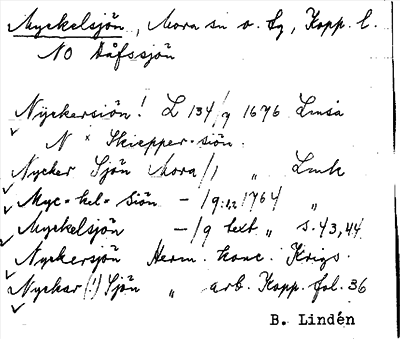 Myckelsjön, Mora sn o. tg, Kopp. l.
NO Dåfssjön
Nÿckersiön! L 134/9 1676 Lmsa
N × Skiepper-siön.
Nycker Sjön Mora/1 " Lmk
Myc=kel= siön - /9:1,2 1764/ "
Myckelsjön - /9 text " s. 43,44
Nyckersjön Herm. konc. Krigs.
Nyckar (!) Sjön " arb. Kopp. fol. 36
B. Lindén